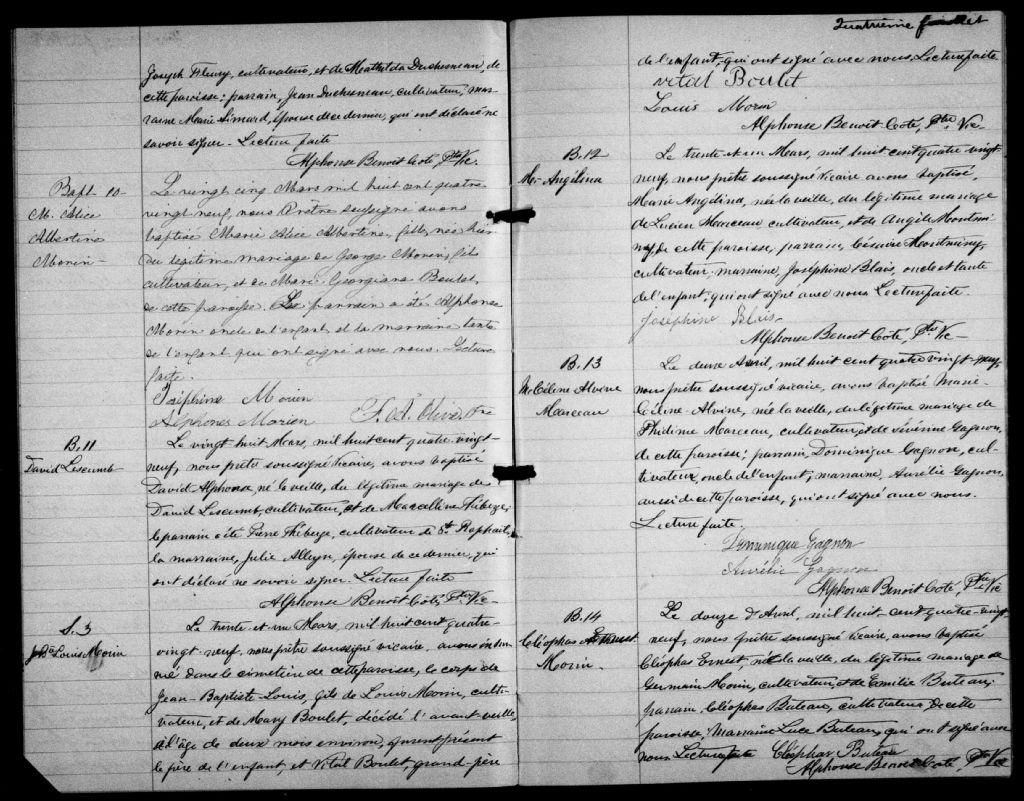 Joseph Fleury, cultivateur, et de Mathilda Duchesneau, de
cette paroisse; parrain, Jean Duchesneau, cultivateur, mar-
raine Marie Simard, épouse de ce dernier, qui ont déclaré ne
savoir signer. Lecture faite
Alphonse Benoit Coté, Ptre Vic.
Bapt. 10
M. Alice
Albertine
Monin
Le vingt cinq Mars mil huit cent quatre
vingt neuf, nous Prêtre soussigné avons
baptisé Marie Alice Albertine, fille, née hier
du légitime mariage de George Monin,
cultivateur, et de Marie Georgiana Boulet,
de cette paroisse. Le parrain a été Alphonse
Morin oncle de l'enfant et la marraine tante
de l'enfant qui ont signé avec nous. Lecture
faite.
Joséphine Morin
Alphonse Morien
Ptre
B. 11
David Lescumb
Le vingt huit Mars, mil huit cent quatre-vingt-
neuf, nous prêtre soussigné Vicaire, avons baptisé
David-Alphonse né la veille, du légitime mariage de
David Lescumb, cultivateur, et de Marcelline Théberge,
le parrain a été Pierre Théberge, cultivateur de St. Raphaël,
la marraine, Julie Alleyn, épouse de ce dernier, qui
ont déclaré ne savoir signer. Lecture faite
Alphonse Benoit Coté, Ptre Vic
S. 3
J. Bte Louis Morin
Le trente et un Mars, mil huit cent quatre-
vingt-neuf, nous prêtre soussigné vicaire, avons inhu-
mé dans le cimetière de cette paroisse, le corps de
Jean-Baptiste-Louis, fils de Louis Morin, culti-
vateur, et de Mary Boulet, décédé l'avant-veille,
à l'âge de deux mois environ, furent présent
le père de l'enfant, et Vital Boulet, grand-père
Quatrième feuillet
de l'enfant, qui ont signé avec nous. Lecture faite.
Vital Boulet
Louis Morin
Alphonse Benoit Coté, Ptre Vic
B. 12
Mie Angélina
Le trente et un Mars, mil huit cent quatre-vingt
neuf, nous prêtre soussigné vicaire avons baptisé,
Marie Angélina, née la veille, du légitime mariage
de Lucien Marceau cultivateur, et de Angèle Montmi-
ny, de cette paroisse, parrain, Césaire Montminy,
cultivateur, marraine, Joséphine Blais, oncle et tante
de l'enfant, qui ont signé avec nous Lecture faite.
Joséphine Blais
Alphonse Benoit Coté, Ptre Vic
B. 13
M. Céline Alvine
Marceau
Le deux Avril, mil huit cent quatre vingt-neuf,
nous prêtre soussigné vicaire, avons baptisé Marie
Céline-Alvine, née la veille, du légitime mariage de
Phidime Marceau, cultivateur, et de Séverine Gagnon,
de cette paroisse; parrain, Dominique Gagnon, cul-
tivateur, oncle de l'enfant, marraine, Aurélie Gagnon,
aussi de cette paroisse, qui ont signé avec nous.
Lecture faite.
Dominique Gagnon
Aurélie Gagnon
Alphonse Benoit Coté, Ptre Vic
B. 14
Cléophas Ernest
Morin
Le douze d'Avril, mil huit cent quatre-vingt
neuf, nous prêtre soussigné vicaire, avons baptisé
Cléophas Ernest, né la veille, du légitime mariage de
Germain Morin, cultivateur, et de Emilie Buteau;
parrain, Cléophas Buteau, cultivateur, de cette
paroisse, Marraine Luce Buteau, qui ont signé avec
nous Lecture faite Cléophas Buteau
Alphonse Benoit Coté, Ptre Vic